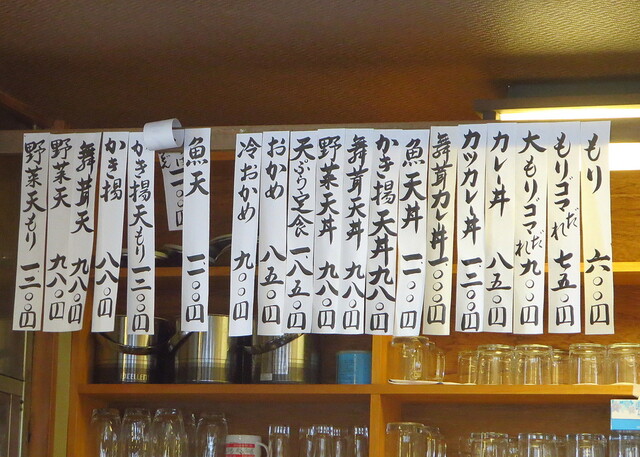 もり 六〇〇円
もりゴマだれ 七五〇円
大もりゴマだれ 九〇〇円
カレー丼 八五〇円
カツカレー丼 一二〇〇円
舞茸カレー丼 一〇〇〇円
魚天丼 一二〇〇円
かき揚天丼 九八〇円
舞茸天丼 九八〇円
野菜天丼 九八〇円
天ぷら定食 一八五〇円
おかめ 八五〇円
冷おかめ 九〇〇円
魚天 一二〇〇円
かき揚天もり 一三〇〇円
かき揚 八八〇円
舞茸天 九八〇円
野菜天 九八〇円
野菜天もり 一三〇〇円